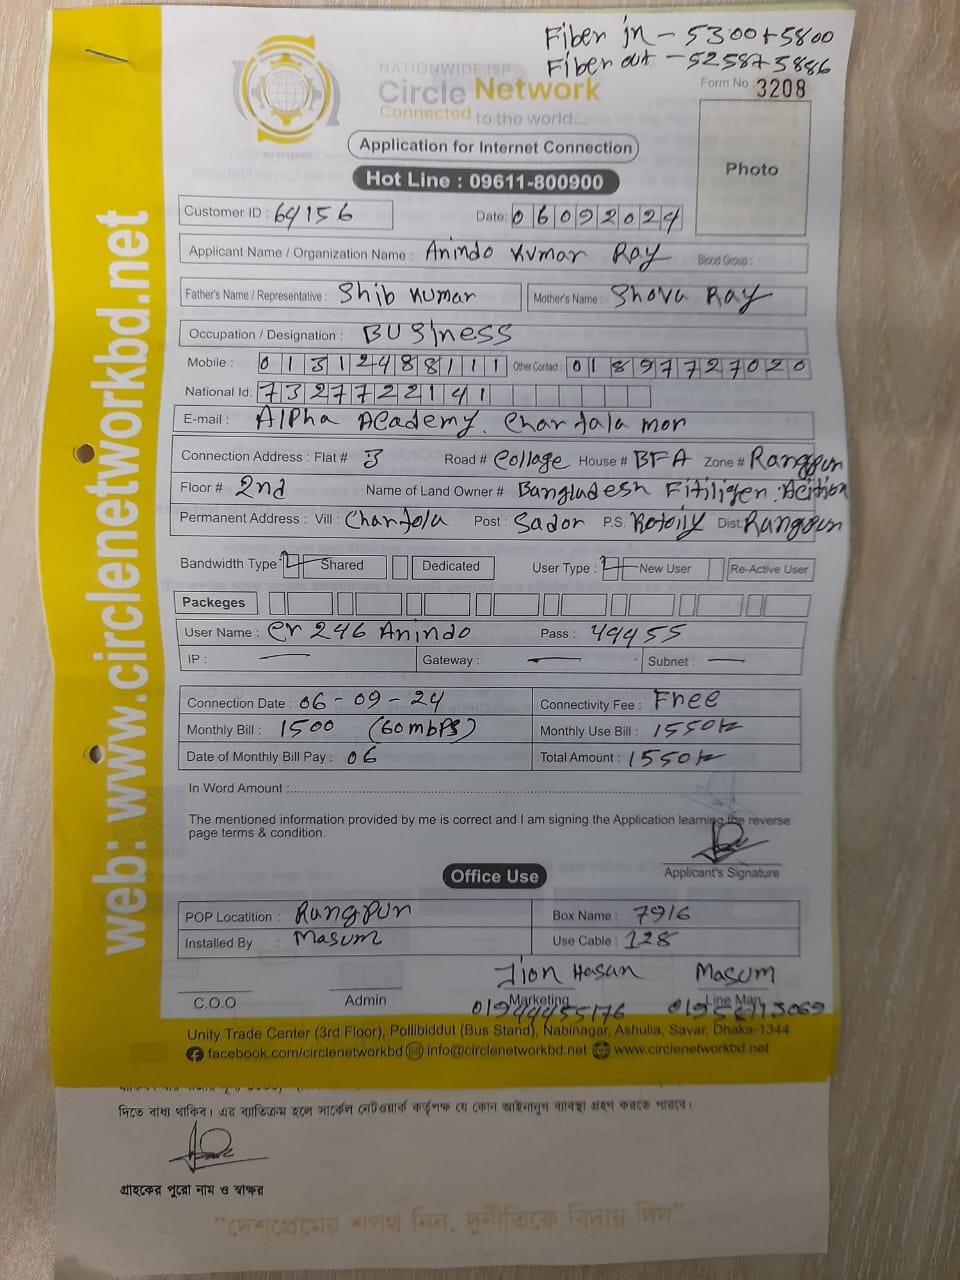 Fiber in - 5300+5800
Fiber out - 5258+5886
NATIONWIDE ISP
Circle Network
Connected to the world...
Form No : 3208
Application for Internet Connection
Photo
Hot Line : 09611-800900
Customer ID : 64156 Date: 06092024
Applicant Name / Organization Name : Anindo Kumar Ray Blood Group :
Father's Name / Representative : Shib Kumar Mother's Name : Shova Ray
Occupation / Designation : BUSIness
Mobile : 01312488111 Other Contact : 01897727020
National Id: 7327722141
E-mail : Alpha Academy. Chartala mor
Connection Address : Flat # 3 Road # Collage House # BFA Zone # Rangpur
Floor # 2nd Name of Land Owner # Bangladesh
Permanent Address : Vill : Chartola Post : Sador P.S. Dist: Rangpur
Bandwidth Type Shared Dedicated User Type : New User Re-Active User
Packeges
User Name : cr 246 Anindo Pass : 49455
IP : — Gateway : — Subnet : —
Connection Date : 06-09-24 Connectivity Fee : Free
Monthly Bill : 1500 (60mbPS) Monthly Use Bill : 1550
Date of Monthly Bill Pay : 06 Total Amount : 1550
In Word Amount :
The mentioned information provided by me is correct and I am signing the Application learning the reverse
page terms & condition.
Applicant's Signature
Office Use
POP Locatition : Rangpur Box Name : 7916
Installed By : Masum Use Cable : 128
Jion Hasan Masum
C.O.O Admin Marketing Line Man
Unity Trade Center (3rd Floor), Pollibiddut (Bus Stand), Nabinagar, Ashulia, Savar, Dhaka-1344
facebook.com/circlenetworkbd info@circlenetworkbd.net www.circlenetworkbd.net
web: www.circlenetworkbd.net
দিতে বাধ্য থাকিব। এর ব্যতিক্রম হলে সার্কেল নেটওয়ার্ক কর্তৃপক্ষ যে কোন আইনানুগ ব্যবস্থা গ্রহণ করতে পারবে।
গ্রাহকের পুরো নাম ও স্বাক্ষর
"দেশপ্রেমের শপথ নিন, দুর্নীতিকে বিদায় দিন"